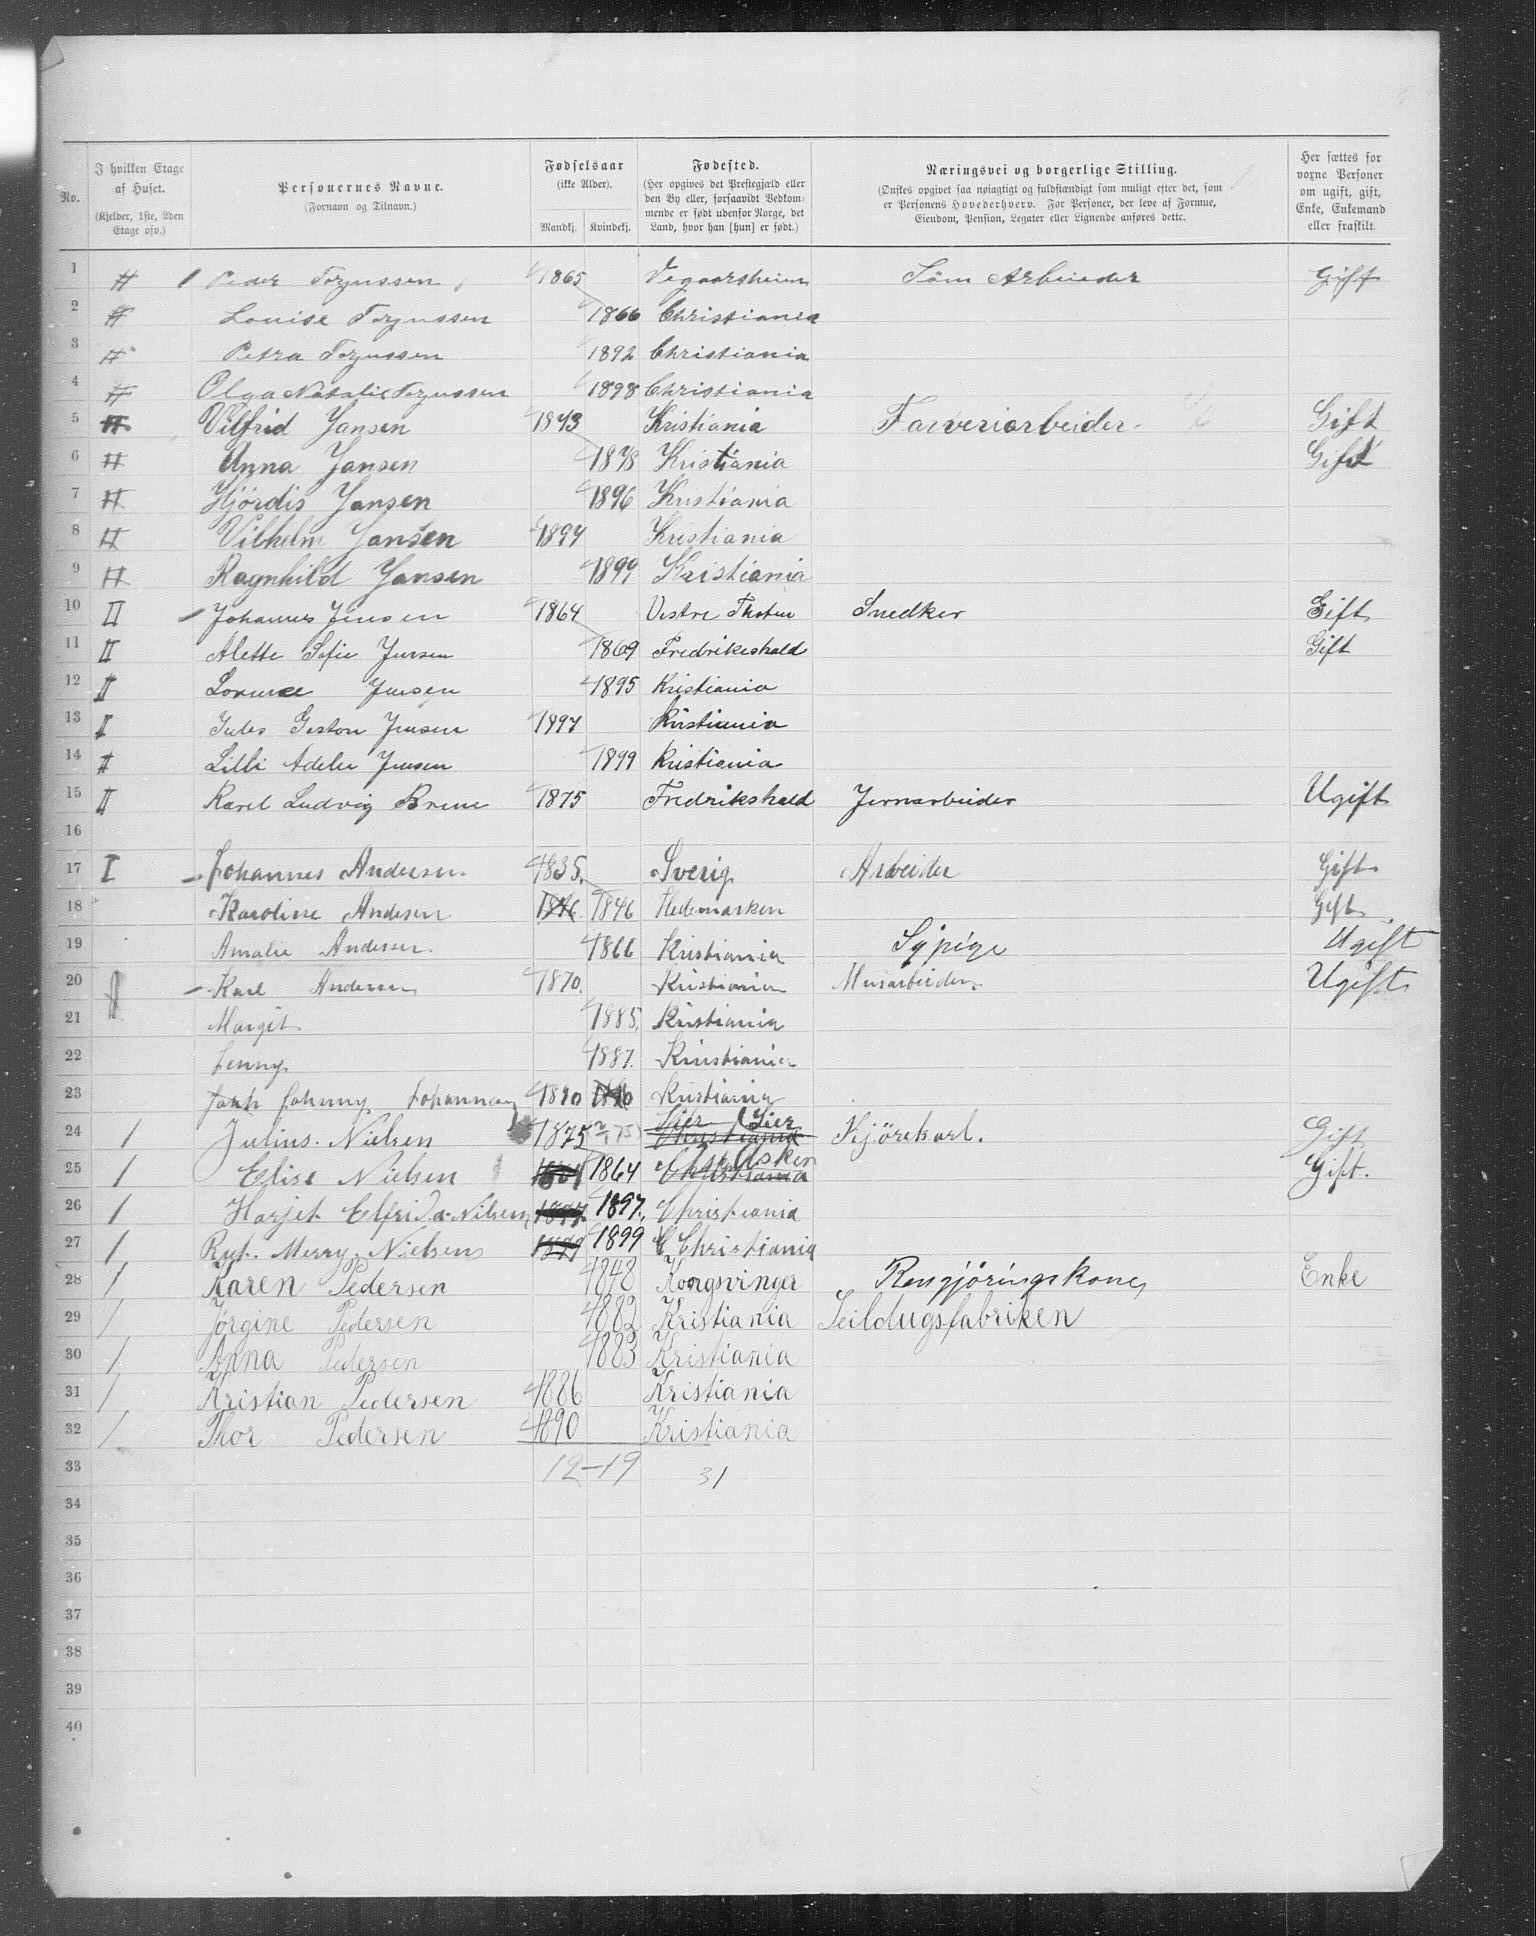 No. I hvilken Etage af Huset. (Kjelder, 1ste, 2den Etage osv.) Personernes Navne. (Fornavn og Tilnavn.) Fødselsaar (ikke Alder). Mandkj. Kvindekj. Fødested. (Her opgives det Prestegjæld eller den By eller, forsaavidt Vedkommende er født udenfor Norge, det Land, hvor han [hun] er født.) Næringsvei og borgerlige Stilling. (Ønskes opgivet saa nøiagtigt og fuldstændigt som muligt efter det, som er Personens Hovederhverv. For Personer, der leve af Formue, Eiendom, Pension, Legater eller Lignende anføres dette. Her sættes for voxne Personer om ugift, gift, Enke, Enkemand eller fraskilt.
1 II Peder Torjussen 1865 Vegaarsheim Töm Arbeider Gift
2 II Louise Torjussen 1866 Christiania
3 II Petra Torjussen 1892 Christiania
4 II Olga Natalie Torjussen 1898 Christiania
5 II Vilfrid Jansen 1873 Kristiania Farveriarbeider Gift
6 II Anna Jansen 1878 Kristiania Gift
7 II Hjördis Jansen 1896 Kristiania
8 II Vilhelm Jansen 1897 Kristiania
9 II Ragnhild Jansen 1899 Kristiania
10 II Johannes Jensen 1864 Vestre Thoten Snedker Gift
11 II Alette Sofie Jensen 1869 Fredrikshald Gift
12 II Jensen 1895 Kristiania
13 II Jules Gaston Jensen 1897 Kristiania
14 II Lilli Adele Jensen 1899 Kristiania
15 II Karel Ludvig 1875 Fredrikshald Jernarbeider Ugift
16
17 I Johannes Andersen 1835 Sverig Arbeider Gift
18 Karoline Andersen 1846 1846 Hedemarken Gift
19 Amalie Andersen 1866 Kristiania Sypige Ugift
20 Karl Andersen 1870. Kristiania Murarbeider. Ugift
21 Margit 1885. Kristiania
22 Jenny 1887. Kristiania
23 Johnny Johannesen 1890 Kristiania
24 1 Julius. Nielsen 1875 Lier Christiania Kjörekarl. Gift
25 1 Elise Nielsen 1864 Asker Christiania Gift.
26 1 Harjet Elfrida Nilsen 1897 1897. Christiania
27 1 Rut. Merry. Nielsen 1899 1899 Christiania
28 1 Karen Pedersen 1848 Kongsvinger Rengjöringskone Enke
29 1 Jørgine Pedersen 1882 Kristiania Seildugsfabriken
30 1 Anna Pedersen 1883 Kristiania
31 1 Kristian Pedersen 1886 Kristiania
32 1 Thor Pedersen 1890 Kristiania
33 12-19 31
34
35
36
37
38
39
40